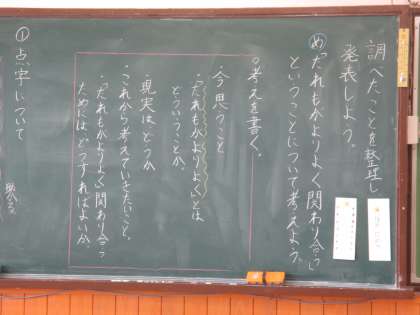 調べたことを整理し
発表しよう。
め「だれもがよりよく関わり合う」
ということについて考えよう。
○考えを書く。
・今思うこと
・「だれもがよりよく」とは
どういうことか。
・現実はどうか
・これから考えていきたいこと。
・「だれもがよりよく関わり合う」
ためには、どうすればよいか。
①点字について